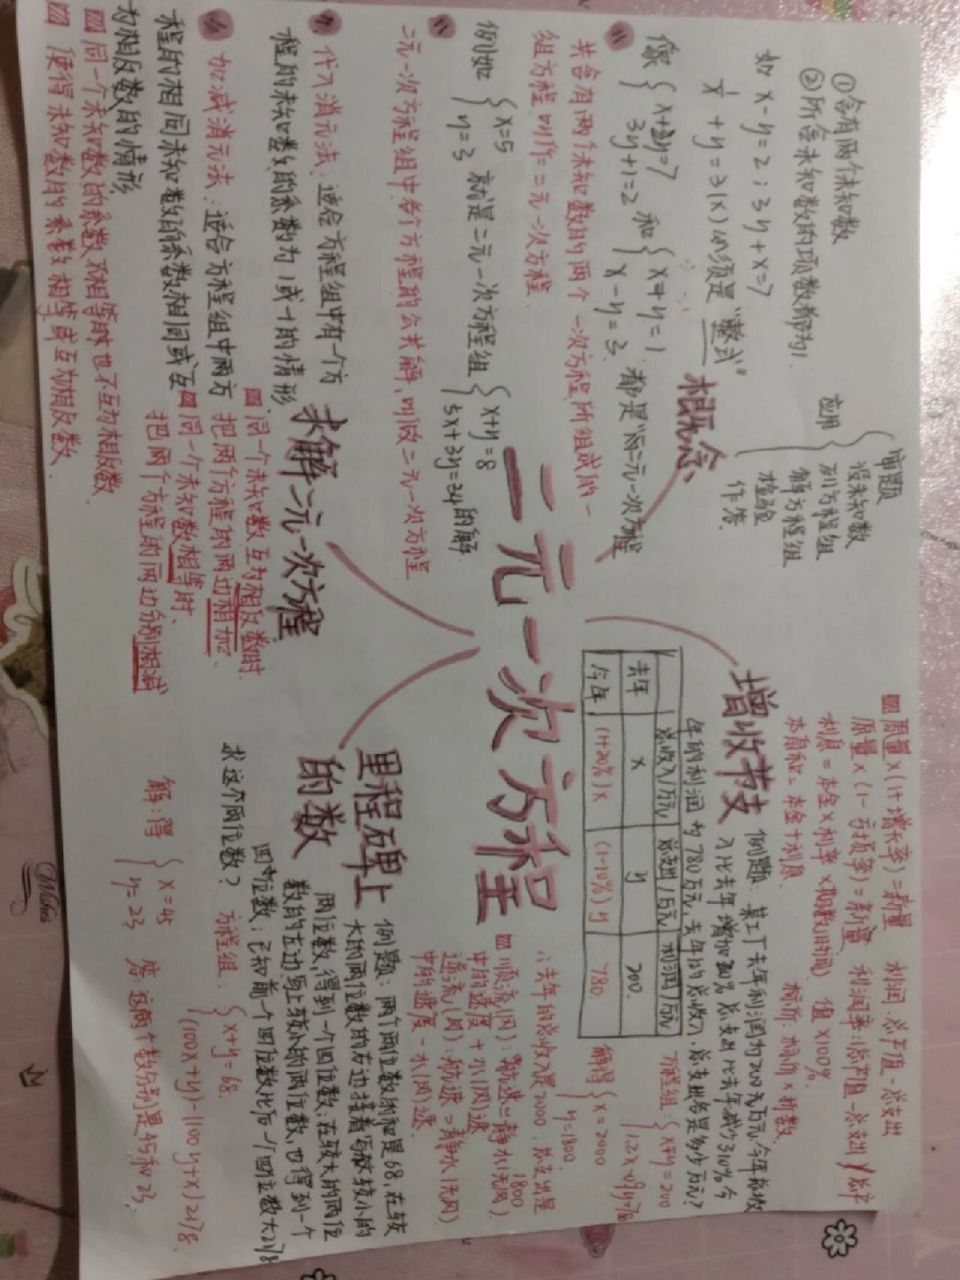 二元一次方程
概念
①含有两个未知数
②所含未知数的项数都为1.
如 x-y=2；3y+x=7
1/x+y=3(x) 必须是"整式"
像 { x+2y=7 3y+1=2 和 { x+y=1 x-y=3 都是
共含有两个未知数的两个一次方程所组成的一
组方程叫作二元一次方程
例如 { x=5 y=3 就是二元一次方程组 { x+y=8 5x+3y=34 的解
二元一次方程组中各个方程的公共解，叫做二元一次方程
应用
审题
设未知数
列方程组
解方程组
检验
作答.
求解二元一次方程
代入消元法：适合方程组中有一个方
程的未知数的系数为1或-1的情形
加减消元法：适合方程组中两方
程的相同未知数的系数相同或互
为相反数的情形
同一个未知数互为相反数时
把两个方程的两边相加.
同一个未知数相等时.
把两个方程的两边分别相减
同一个未知数的系数不相等时也不互为相反数
使得未知数的系数相等或互为相反数
增收节支
质量×(1+增长率)=新量
质量×(1-亏损率)=新量
利息=本金×利率×期数(时间)
本息和=本金+利息.
利润：总产值-总支出
利润率：(总产值-总支出)/总产
值×100%.
标价×折数
例题：某工厂去年利润为200万元，今年总收
入比去年增加20%，总支出比去年减少10%，今
年的利润为780万元，去年的总收入，总支出各是多少万元？
总收入/万元 总支出/万元 利润/万元
去年 x y 200
今年 (1+20%)x (1-10%)y 780
方程组： { x-y=200 1.2x-0.9y=780
解得 { x=2000 y=1800
∴去年的总收入是2000，总支出是
1800
顺流(风)：航速=静水(无风)
中的速度+水(风)速
逆流(风)：航速=静水(无风)
中的速度-水(风)速.
里程碑上
的数
例题：两个两位数的和是68，在较
大的两位数的右边接着写较小的
两位数，得到一个四位数，在较大的两位
数的左边写上较小的两位数，也得到一个
四位数；已知前一个四位数比后一个四位数大2178
求这个两位数？
方程组： { x+y=68. (100x+y)-(100y+x)=2178.
解：得 { x=45 y=23
答：这两个数分别是45和23.